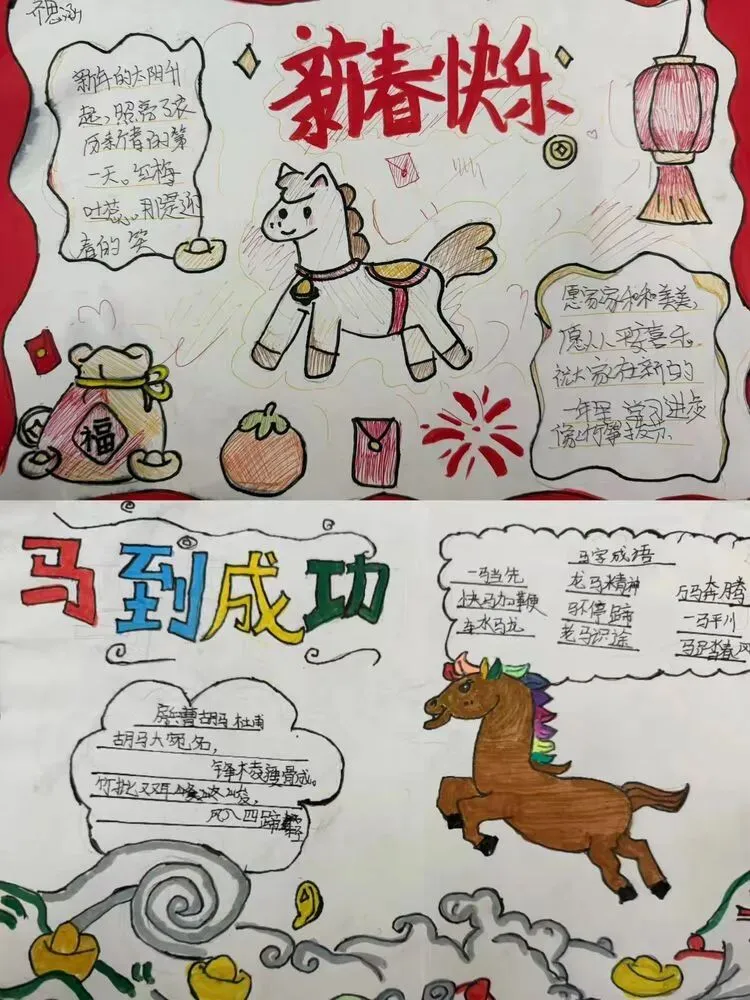 新春快乐
新年的太阳升
起，照亮了农
历新春的第
一天。红梅
吐蕊，用是迎
春的笑
愿家家和和美美，
愿人人平安喜乐。
祝大家在新的
一年里 学习进步
像竹节拔节
福
马到成功
马字成语
一马当先 龙马精神 万马奔腾
快马加鞭 马不停蹄 一马平川
车水马龙 老马识途 马踏春风
房兵曹胡马 杜甫
胡马大宛名，
锋棱瘦骨成。
竹批双耳峻，
风入四蹄轻